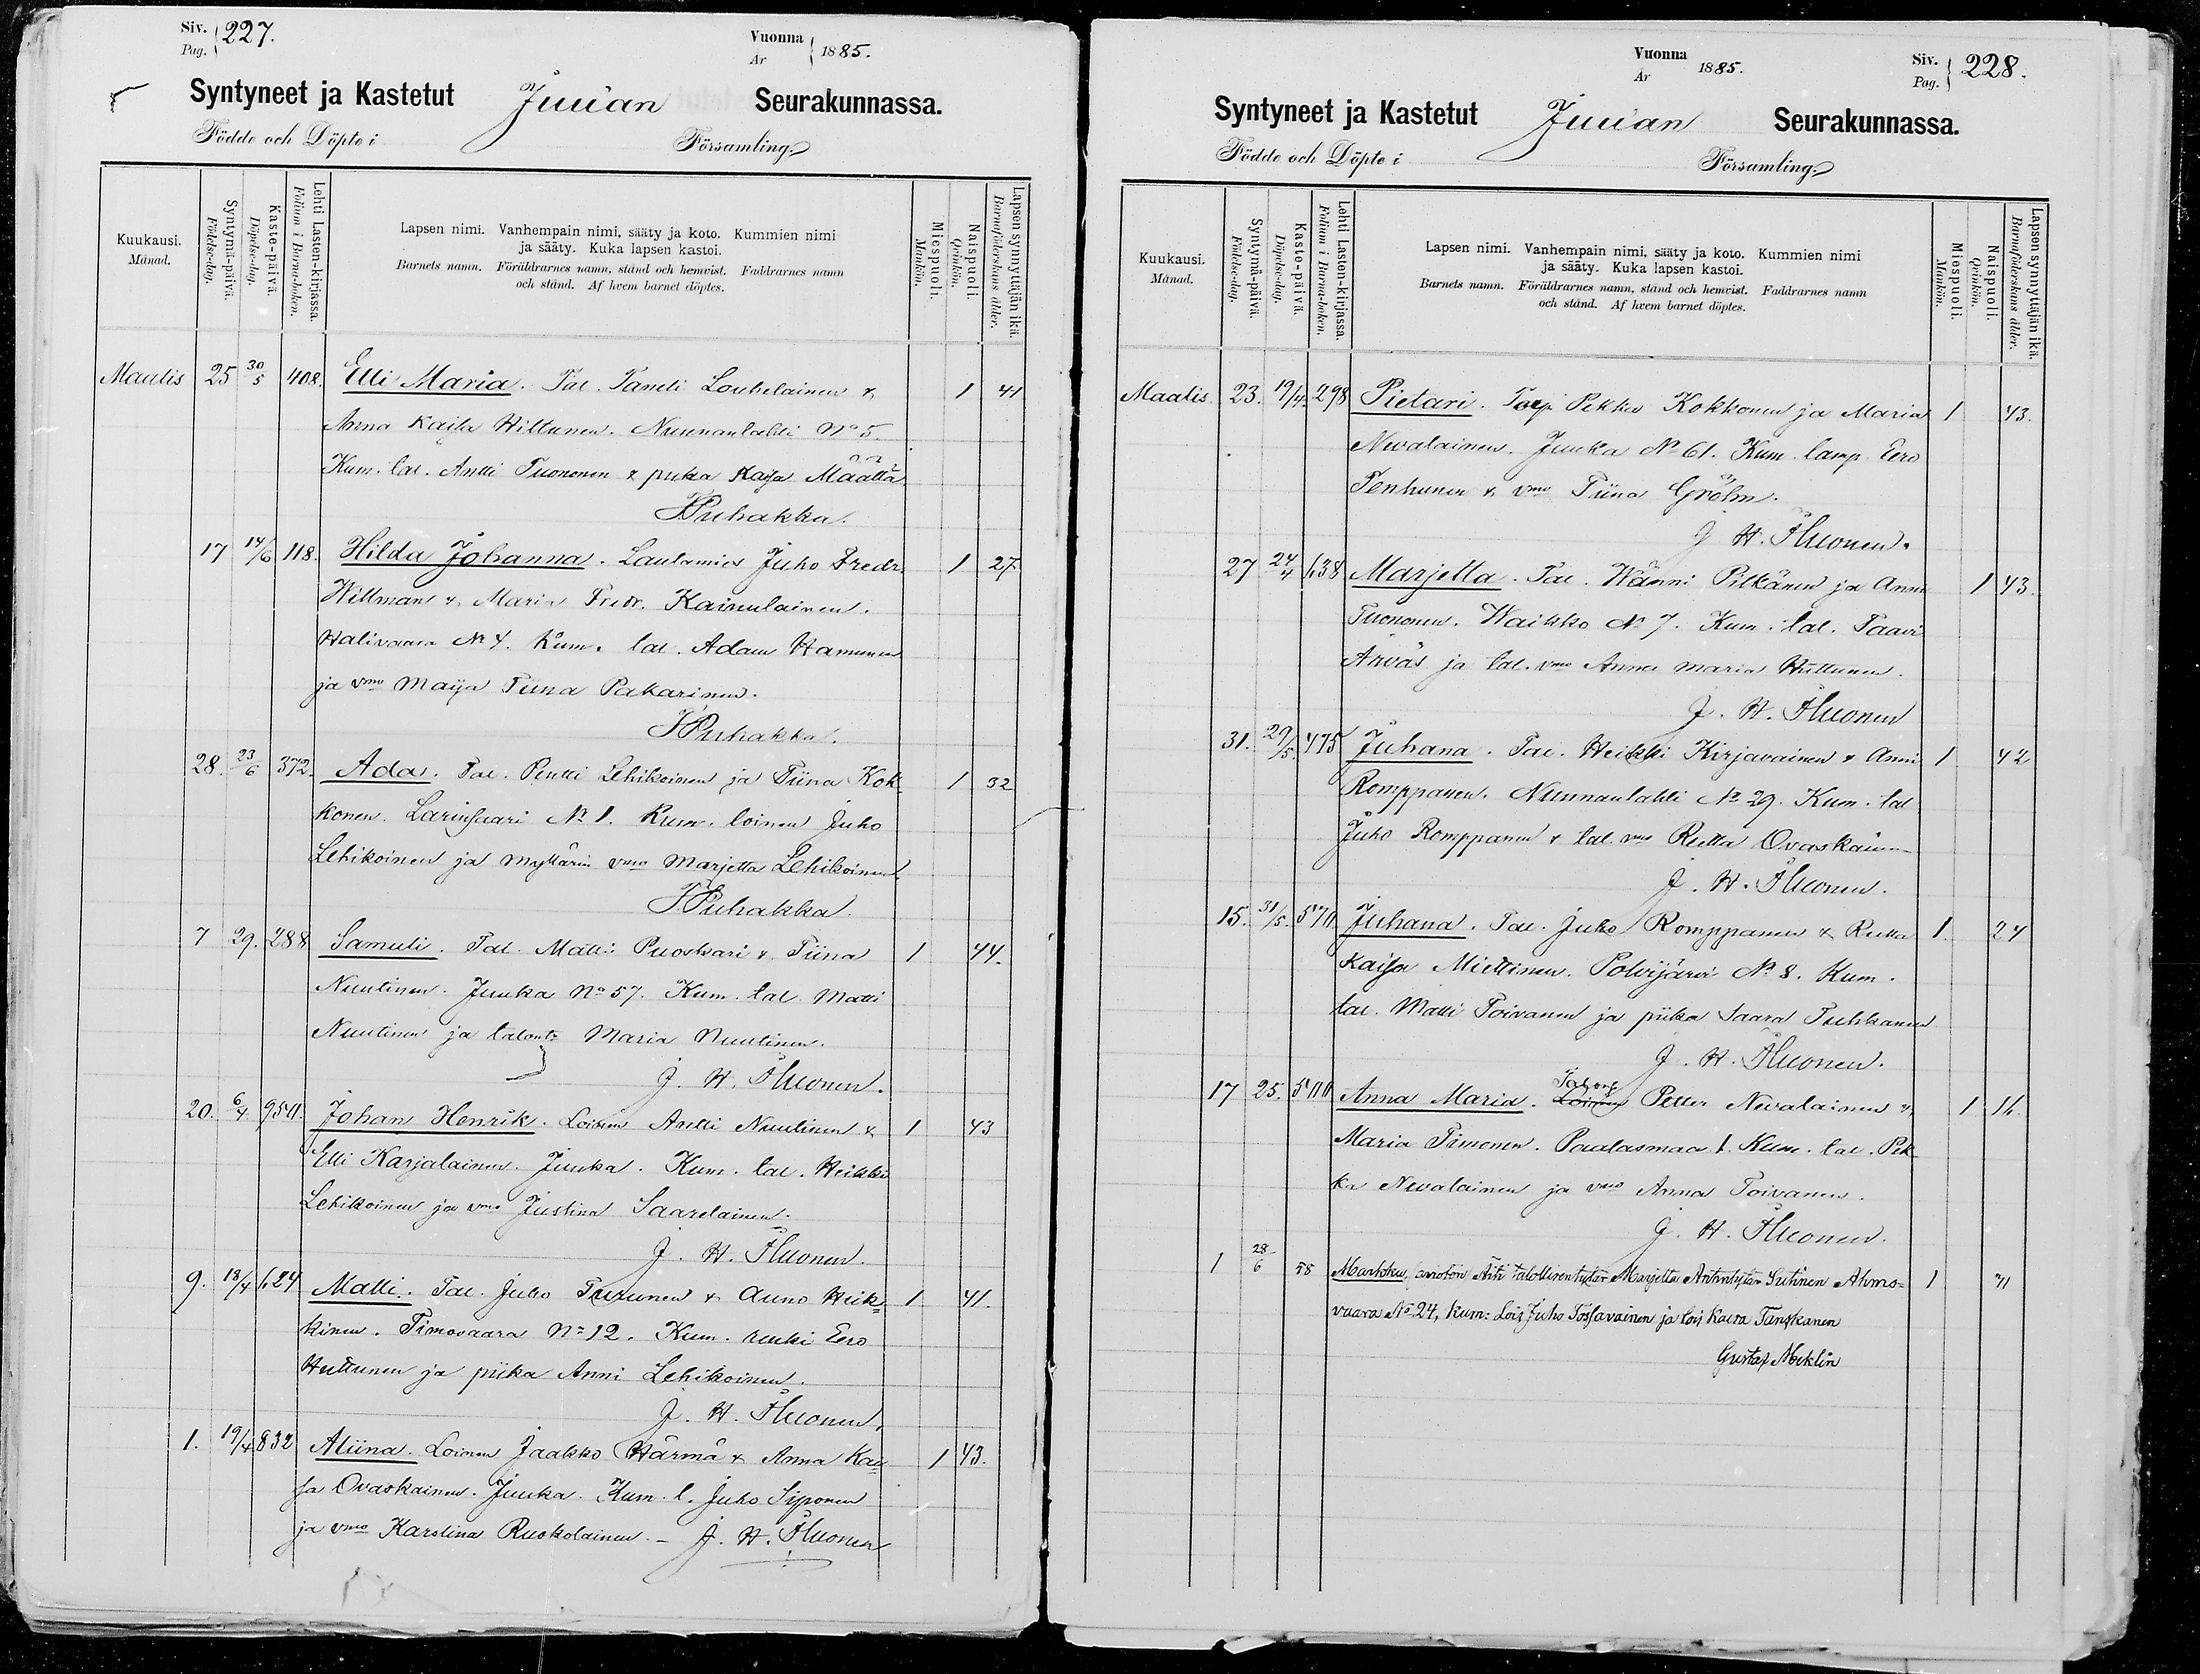 Siv. 227.
Pag.
Vuonna 1885.
År
Syntyneet ja Kastetut Juuan Seurakunnassa.
Födde och Döpte i Församling.
Kuukausi.
Månad.
Syntymä-päivä.
Födelse-dag.
Kaste-päivä.
Döpelse-dag.
Lehti Lasten-kirjassa.
Folium i Barna-boken.
Lapsen nimi. Vanhempain nimi, sääty ja koto. Kummien nimi
ja sääty. Kuka lapsen kastoi.
Barnets namn. Föräldrarnes namn, stånd och hemvist. Faddrarnes namn
och stånd. Af hvem barnet döptes.
Miespuoli.
Mankön.
Naispuoli.
Qvinkön.
Lapsensynnyttäjän ikä.
Barnaföderskans ålder.
Maalis 25 30/5 408. Elli Maria. Tal. Taneli Louhelainen & 1 41
Anna Kaisa Hiltunen. Nunnanlahti No 5.
Kum. tal. Antti Tuononen & piika Kaisa Määttä
Puhakka.
17 14/6 118. Hilda Johanna. Lautamies Juho Fredr. 1 27
Willman & Maria Fredr. Kainulainen.
Halivaara No 4. Kum. tal. Adam Hamunen
ja vmo Maija Tiina Pakarinen.
Puhakka.
28. 23/6 372. Ada. Tal. Pentti Lehikoinen ja Tiina Kok- 1 32
konen. Larinsaari No 1. Kum. loinen Juho
Lehikoinen ja myllärin vmo Marjetta Lehikoinen.
Puhakka.
7 29. 288 Samuli. Tal. Matti Puoskari & Tiina 1 44.
Nuutinen. Juuka No 57. Kum. tal. Matti
Nuutinen ja Maria Nuutinen.
J. H.
20. 6/4. 950. Johan Henrik. Loinen Antti Nuutinen & 1 43
Elli Karjalainen. Juuka. Kum. tal. Heikki
Lehikoinen ja vmo Justina Saarelainen.
J. H.
9. 18/4 624 Matti. Tal. Juho Turunen & Anna Heik- 1 41.
kinen. Timovaara No 12. Kum. renki Eero
Huttunen ja piika Anni Lehikoinen.
J. H.
1. 19/4 832 Aliina. Loinen Jaakko Härmä & Anna Kai- 1 43.
sa Ovaskainen. Juuka. Kum. l. Juho Siponen
ja vmo Karolina Ruokolainen. – J. H.
Vuonna 1885.
År
Siv. 228.
Pag.
Syntyneet ja Kastetut Juuan Seurakunnassa.
Födde och Döpte i Församling.
Kuukausi.
Månad.
Syntymä-päivä.
Födelse-dag.
Kaste-päivä.
Döpelse-dag.
Lehti Lasten-kirjassa.
Folium i Barna-boken.
Lapsen nimi. Vanhempain nimi, sääty ja koto. Kummien nimi
ja sääty. Kuka lapsen kastoi.
Barnets namn. Föräldrarnes namn, stånd och hemvist. Faddrarnes namn
och stånd. Af hvem barnet döptes.
Miespuoli.
Mankön.
Naispuoli.
Qvinkön.
Lapsensynnyttäjän ikä.
Barnaföderskans ålder.
Maalis. 23. 19/4. 298 Pietari. Torp. Pekka Kokkonen ja Maria 1 43.
Nevalainen. Juuka No 61. Kum. lamp. Eero
Tenhunen & vmo Tiina Gröhn.
J H.
27 24/4 638 Marjetta. Tal. Wänni Pitkänen ja Anni 1 43.
Tuononen. Waikko No 7. Kum. tal. Taavi
Ärväs ja tal. vmo Anna Maria Hiltunen.
J. H.
31. 29/5. 475 Juhana. Tal. Heikki Kirjavainen & Anni 1 42
Romppanen. Nunnanlahti No 29. Kum. tal.
Juho Romppanen & tal. vmo Reetta Ovaskainen
J. H.
15. 31/5. 570 Juhana. Tal. Juho Romppanen & Reetta 1. 24
Kaisa Miettinen. Polvijärvi No 8. Kum.
tal. Matti Toivanen ja piika Saara Tuhkanen
J. H.
17 25. 500 Anna Maria. Loinen Petter Nevalainen & 1
Maria Timonen. Paalasmaa 1. Kum. tal. Pek-
ka Nevalainen ja vmo Anna Toivanen.
J. H.
1 28/6 58 Markku, avioton Äiti talollisentytär Marjetta Antintytär Sutinen Ahmo- 1
vaara No 24, Kum: Lois Juho Tossavainen ja lois Kaisa Tanskanen
Gustaf Meklin